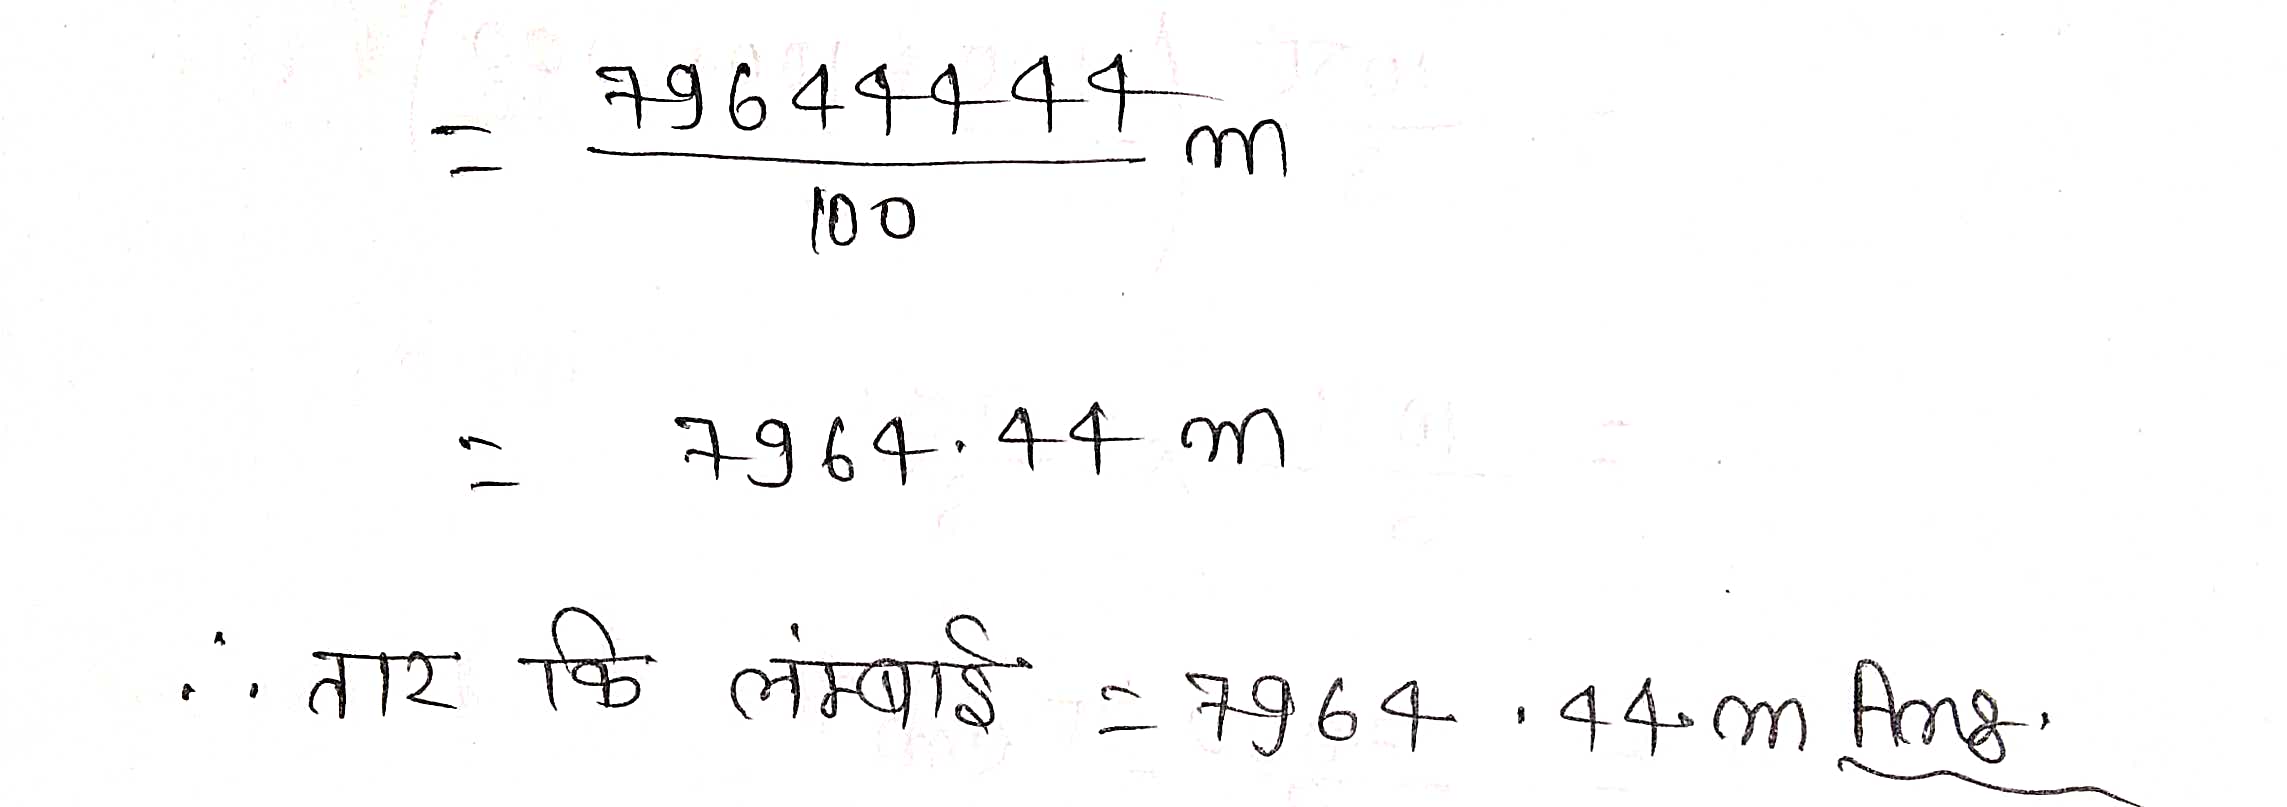 = 79644444 m
100
= 7964.44 m
∴ तार कि लंम्बाई = 7964.44 m Ans.